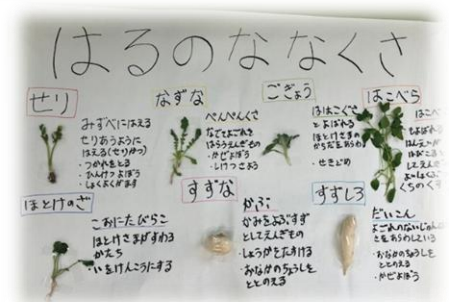 はるのななくさ
せり
みずべにはえる
せりあうように
はえる(せりかつ)
・つかれをとる
・ひんけつよぼう
・しょくよくがます
なずな
ぺんぺんぐさ
なでてよごれを
はらうえんぎもの
・かぜよぼう
・しけつさよう
ごぎょう
ははこぐさ
とよばれる
ほとけさまの
からだをあらわ
・せきどめ
はこべら
はこべ
ほとけのざ
こおにたびらこ
ほとけさまがすわる
かたち
・いをけんこうにする
すずな
かぶ
かみをよぶすず
としてえんぎもの
・しょうかをたすける
・おなかのちょうしを
ととのえる
すずしろ
だいこん
よごれのないじゅん
さをあらわしている
・おなかのちょうしを
ととのえる
・かぜよぼう